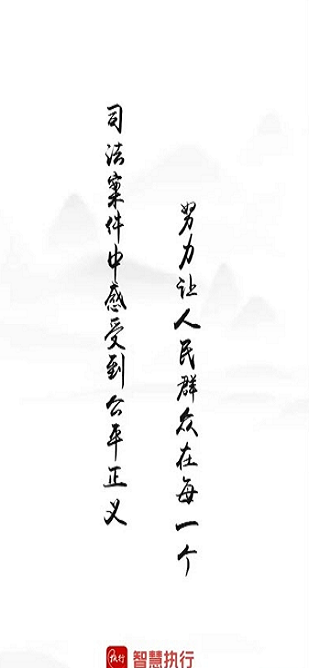 努力让人民群众在每一个
司法案件中感受到公平正义
执行 智慧执行